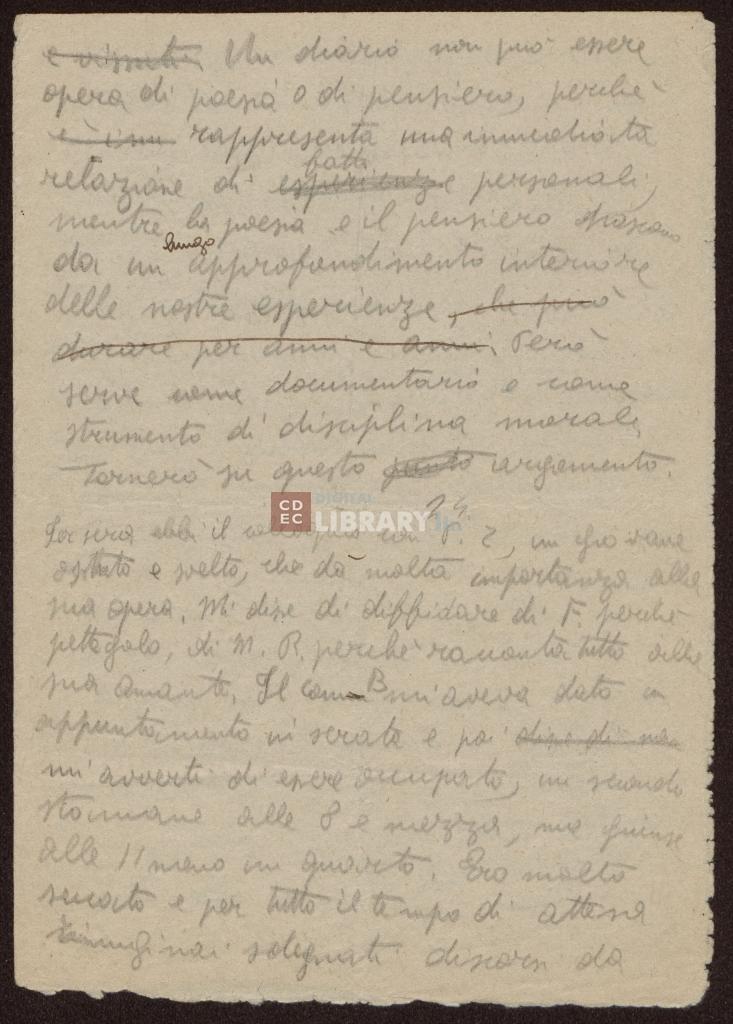 e vissuta. Un diario non può essere
opera di poesia o di pensiero, perchè
è rappresenta una immediata
relazione di esperienze fatti personali,
mentre la poesia e il pensiero
da un lungo approfondimento interiore
delle nostre esperienze, che può
durare per anni e anni. Però
serve come documentario e come
strumento di disciplina morale.
Tornerò su questo punto argomento.
CDEC DIGITAL LIBRARY
Ier sera ebbi il colloquio con P. 2, un giovane
e svelto, che dà molta importanza alla
sua opera. Mi disse di diffidare di F. perchè
pettegolo, di M. R. perchè racconta tutto alla
sua amante. Il B mi aveva dato un
appuntamento in serata e poi disse di non
mi avvertì di essere occupato, un secondo
stamane alle 8 e mezza, ma giunse
alle 11 meno un quarto. Ero molto
seccato e per tutto il tempo di attesa
immaginai sdegnati discorsi da